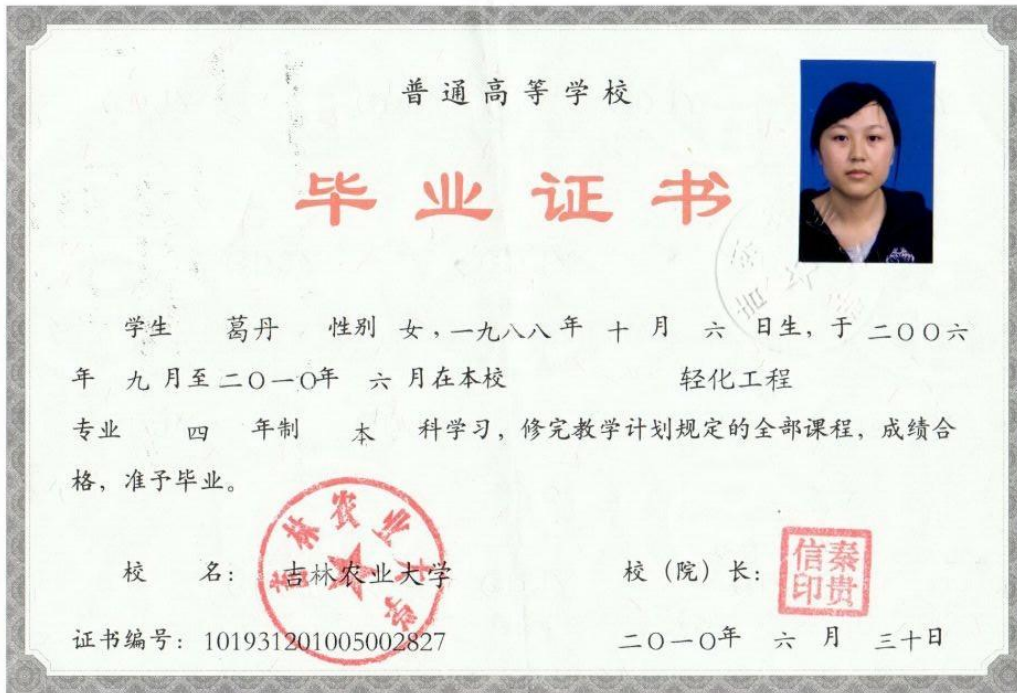 普通高等学校
毕业证书
学生 葛丹 性别 女，一九八八年 十 月 六 日生，于 二〇〇六
年 九 月至 二〇一〇年 六 月在本校 轻化工程
专业 四 年制 本 科学习，修完教学计划规定的全部课程，成绩合
格，准予毕业。
吉林农业大学
校 名： 吉林农业大学 校（院）长：
秦贵信印
证书编号：101931201005002827 二〇一〇年 六 月 三十日